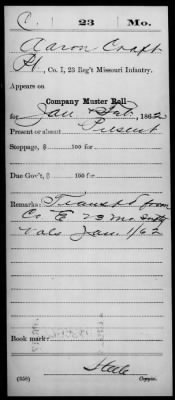 C | 23 | Mo.
Aaron Craft
Pt., Co. I, 23 Reg't Missouri Infantry.
Appears on
Company Muster Roll
for Jan & Feb., 1862
Present or absent Present
Stoppage, $ 100 for
Due Gov't, $ 100 for
Remarks: Transf'd from
Co E 23 Mo Infty
Vols Jan. 1/62
Book mark:
Steele
(358) Copyist.